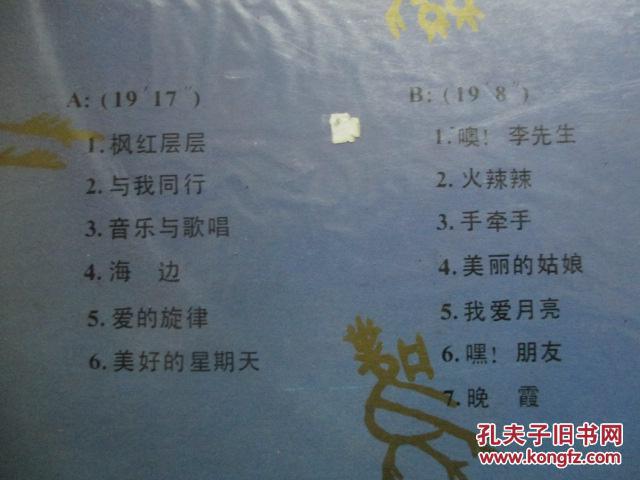 A: (19′17″)
1. 枫红层层
2. 与我同行
3. 音乐与歌唱
4. 海 边
5. 爱的旋律
6. 美好的星期天
B: (19′8″)
1. 噢! 李先生
2. 火辣辣
3. 手牵手
4. 美丽的姑娘
5. 我爱月亮
6. 嘿! 朋友
7. 晚 霞
孔夫子旧书网
www.kongfz.com